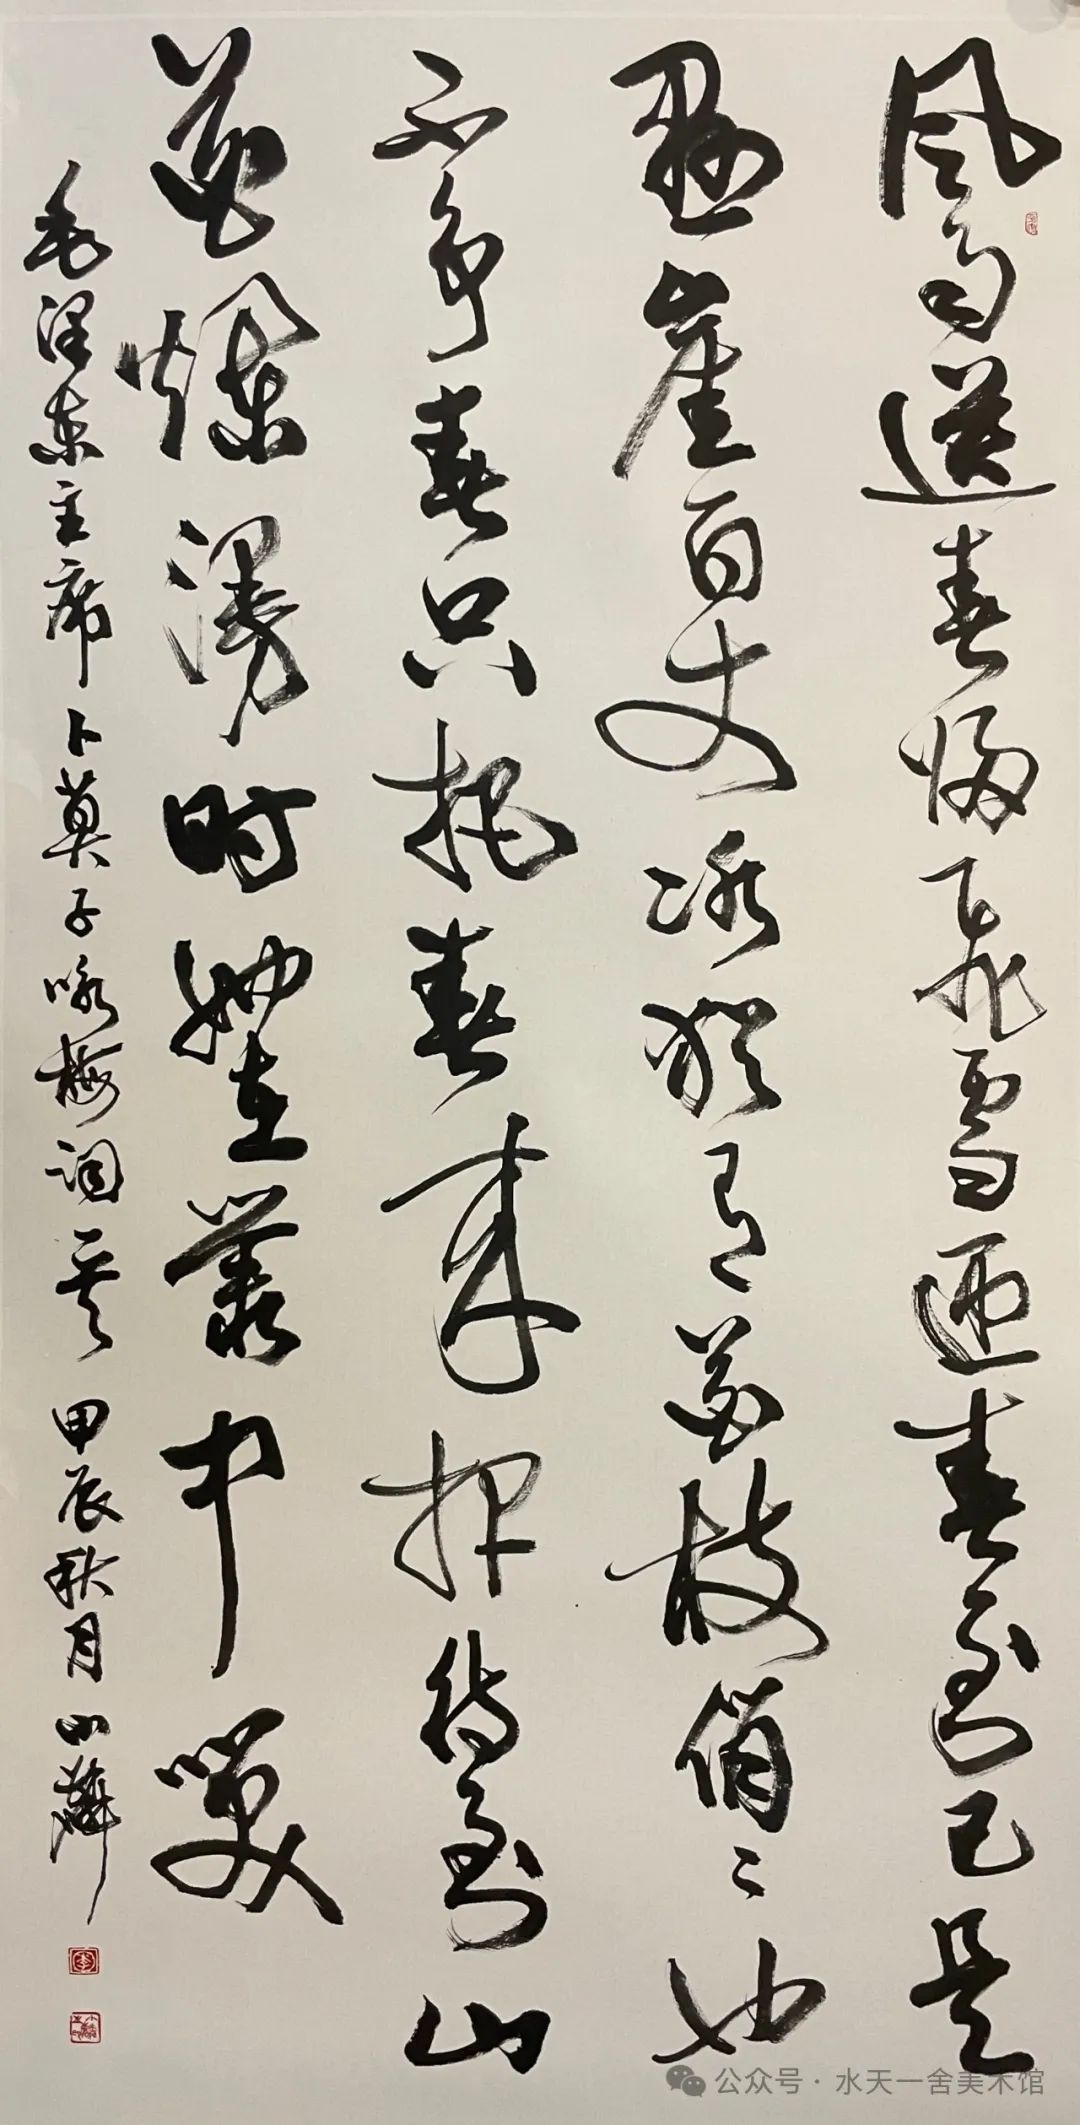 風雨送春歸飛雪迎春到已是
懸崖百丈冰猶有花枝俏〻也
不爭春只把春來報待到山
花爛漫時她在叢中笑
毛澤東主席卜算子咏梅詞一首 甲辰秋月小麟
李
公众号·水天一舍美术馆